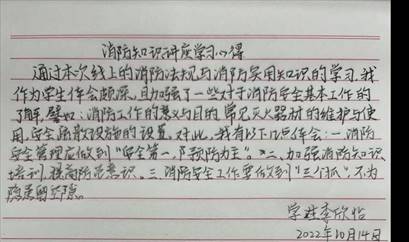 消防知识讲座学习心得
通过本次线上的消防法规与消防实用知识的学习,我
作为学生体会颇深,且加强了一些对于消防安全基本工作的
了解,譬如:消防工作的意义与目的,常见灭火器材的维护与使
用,安全疏散设施的设置。对此,我有以下几点体会:一.消防
安全管理应做到“安全第一,预防为主”。二、加强消防知识
培训,提高防范意识。三.消防安全工作要做到“三个抓”不为
隐患留空隙。
学生李欣怡
2022年10月14日